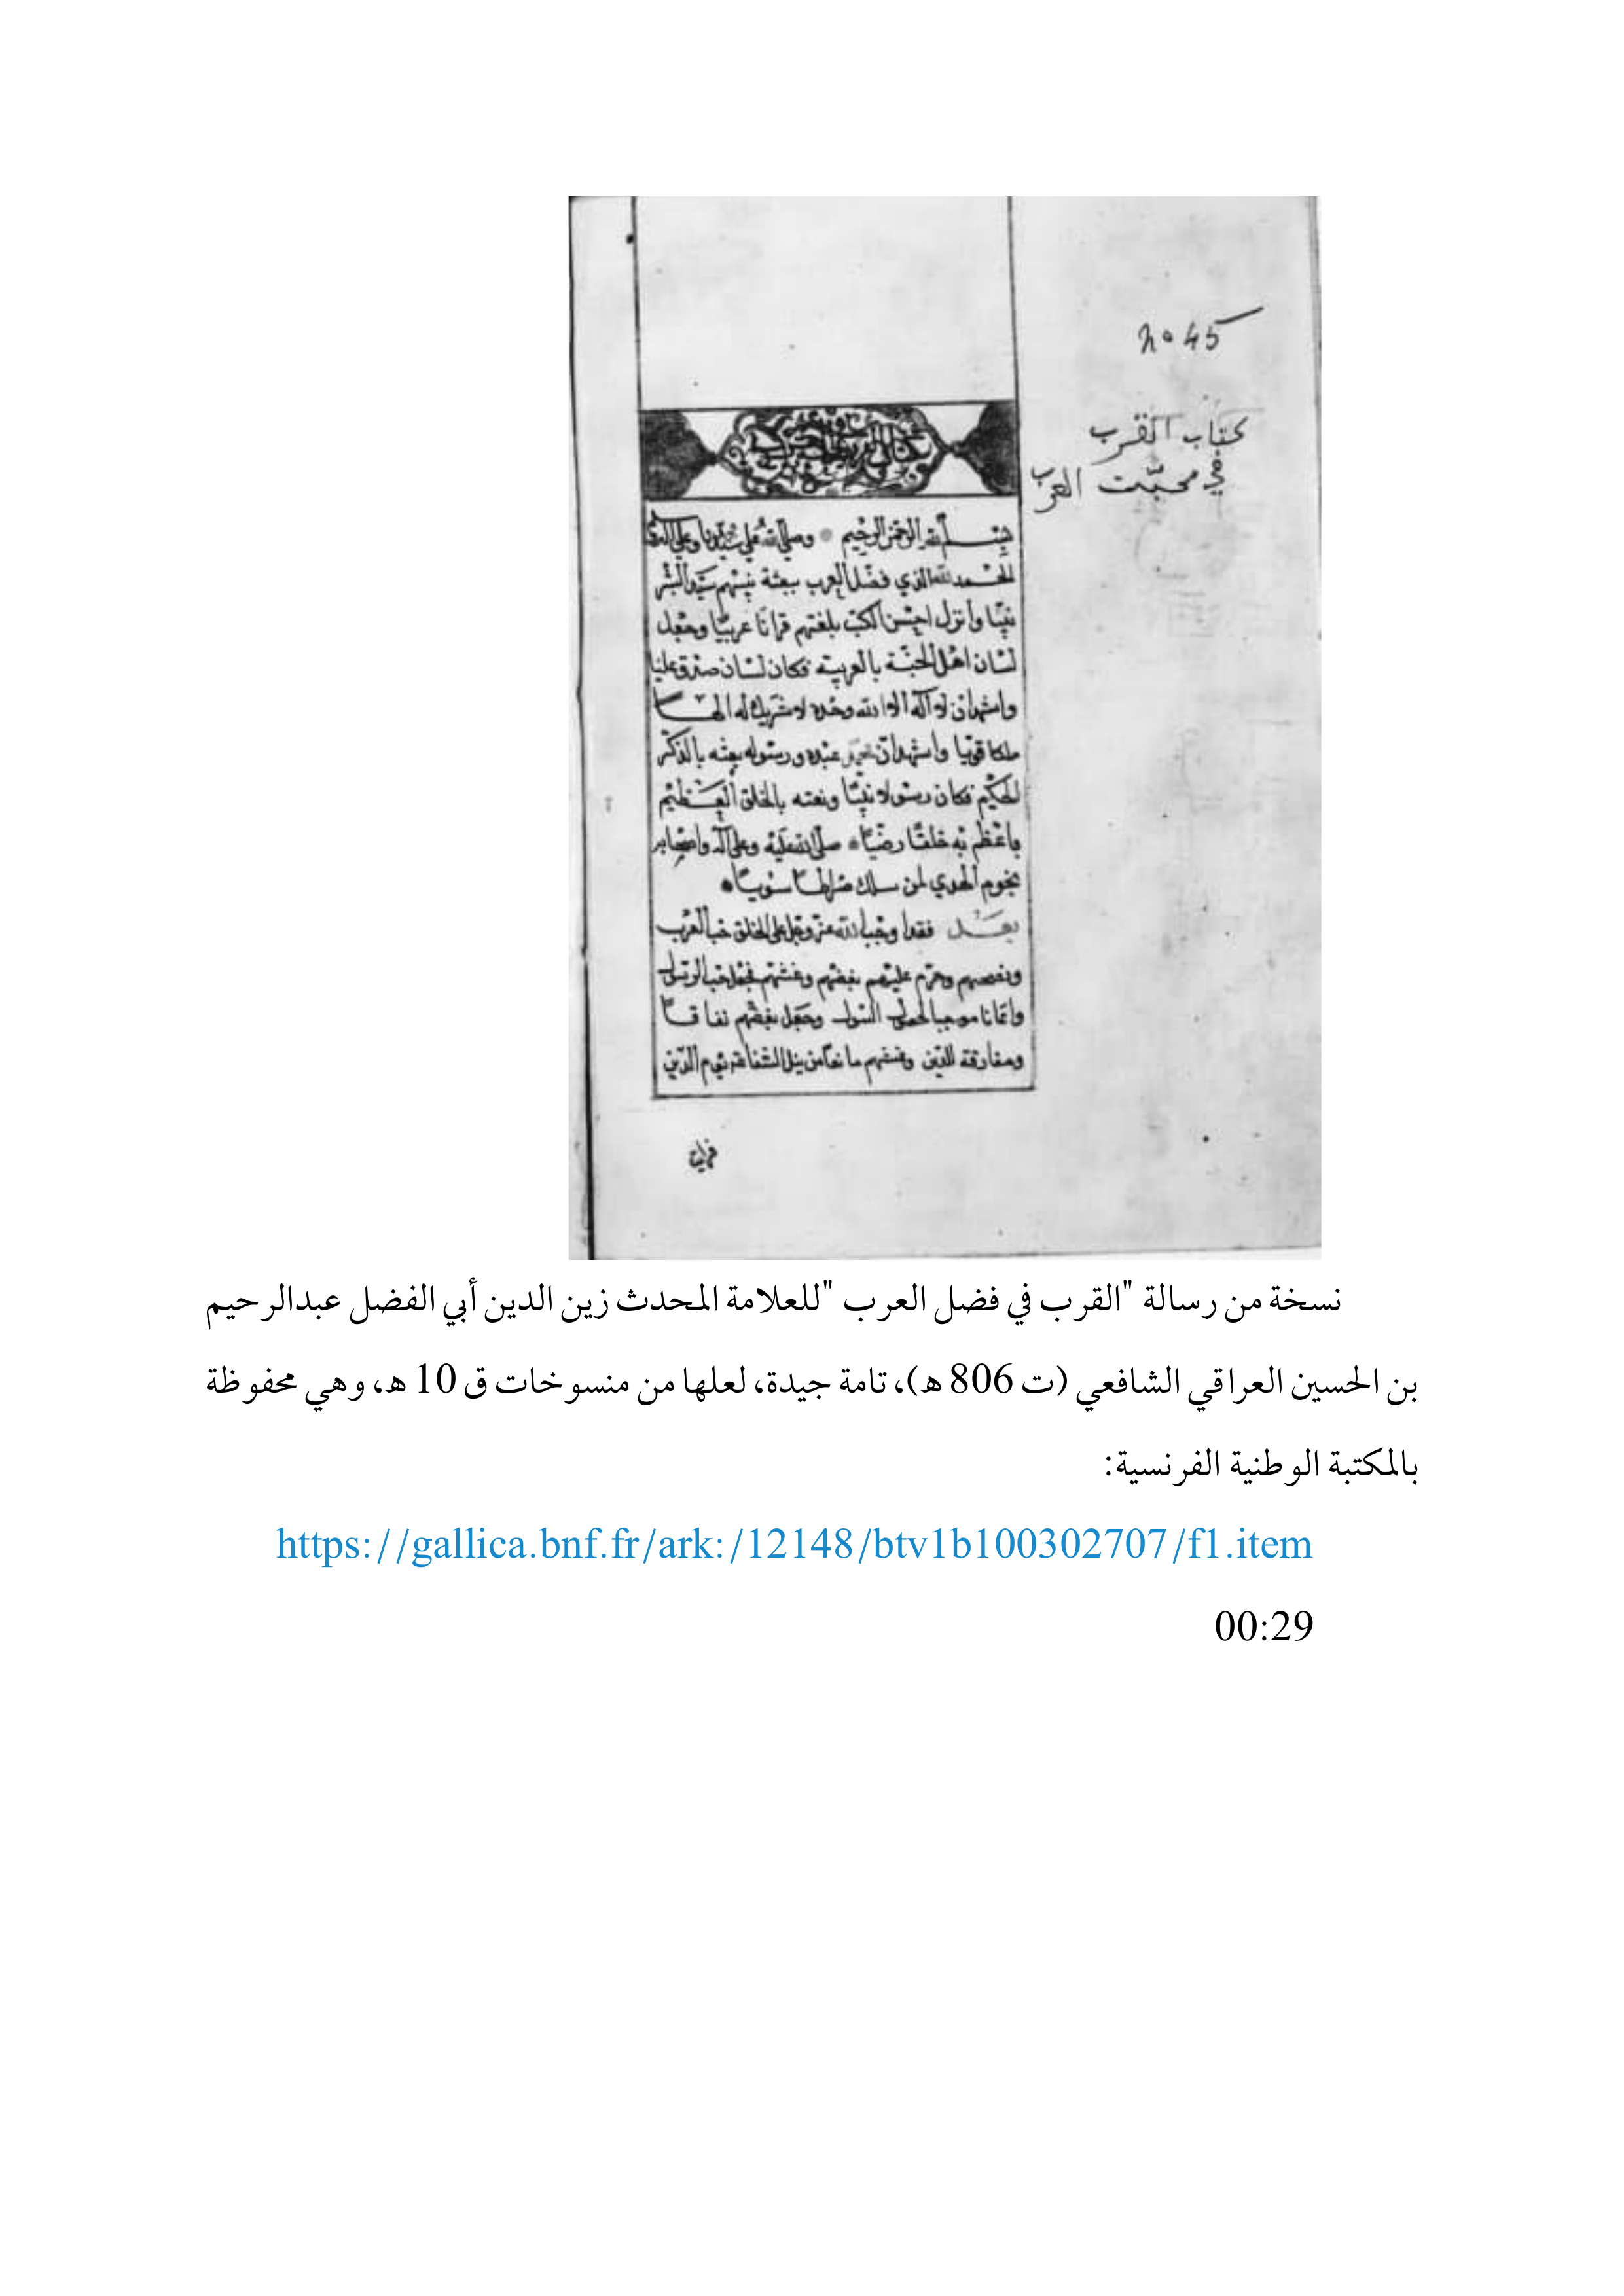 no 45
كتاب القرب
في محبّت العرب
بسم الله الرحمن الرحيم وصلى الله على سيدنا وعلى اله
الحمد لله الذي فضل العرب ببعثة نبيهم سيد البشر
نبيا وأنزل احسن الكتب بلغتهم قرانا عربيا وجعل
لسان اهل الجنة بالعربية فكان لسان صدق عليا
واشهد ان لا اله الا الله وحده لا شريك له الها
ملكا قويا واشهد ان محمد عبده ورسوله بعثه بالذكر
الحكيم فكان رسولا نبيا ونعته بالخلق العظيم
باعظم به خلقا رضيا صلى الله عليه وعلى اله واصحابه
نجوم الهدي لمن سلك صراطا سويا
بعد فقد اوجب الله عز وجل على الخلق حب العرب
وحرم عليهم بغضهم وغشهم فجعل حب الرسول
السول وجعل بغضهم نفاقا
ومفارقة للدين وغشهم مانعا من نيل الشفاعة يوم الدين
نسخة من رسالة "القرب في فضل العرب "للعلامة المحدث زين الدين أبي الفضل عبدالرحيم
بن الحسين العراقي الشافعي (ت 806 هـ)، تامة جيدة، لعلها من منسوخات ق 10 هـ، وهي محفوظة
بالمكتبة الوطنية الفرنسية:
https://gallica.bnf.fr/ark:/12148/btv1b100302707/f1.item
00:29